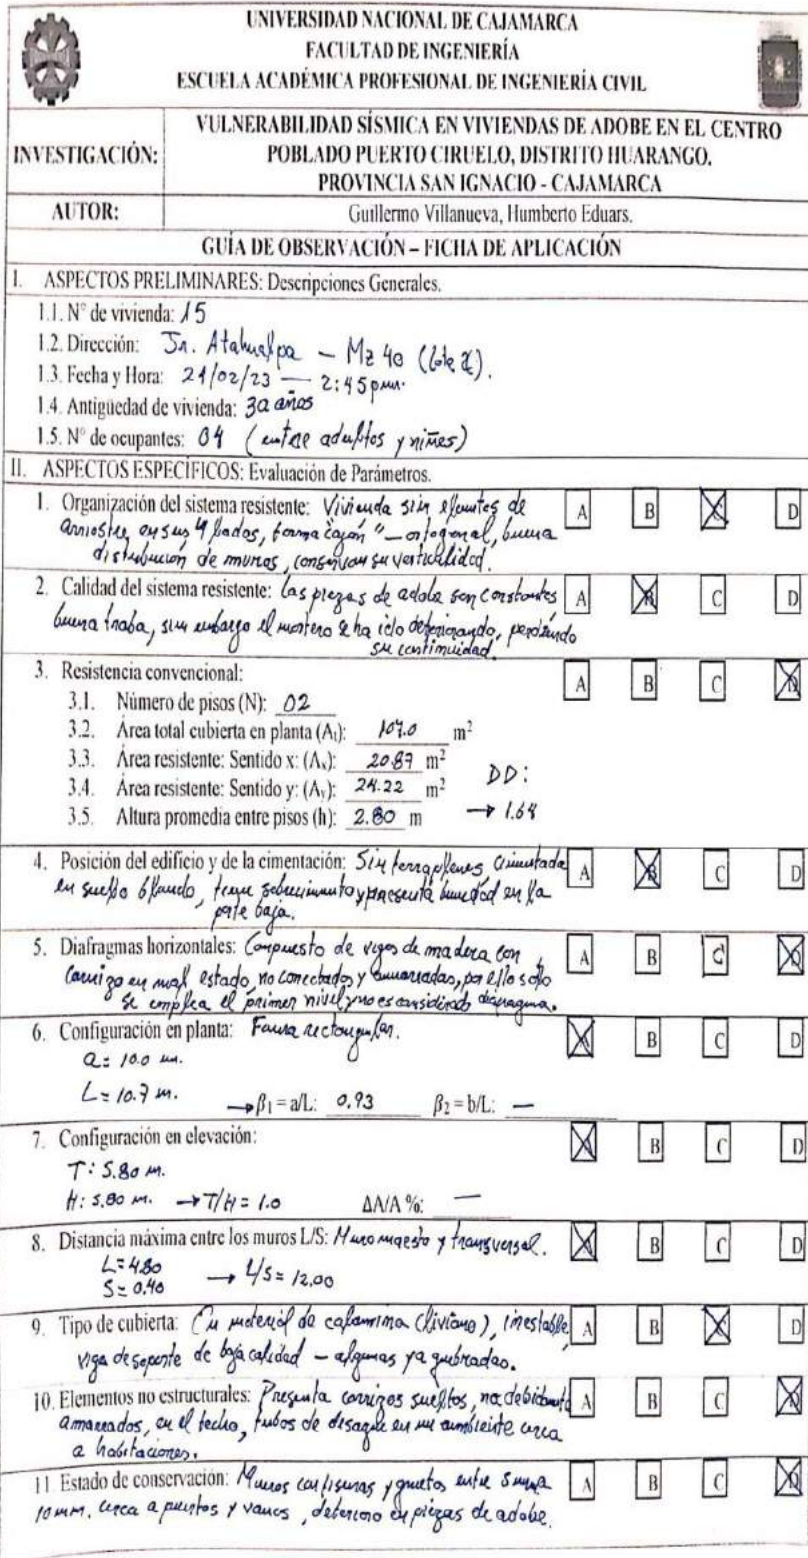 UNIVERSIDAD NACIONAL DE CAJAMARCA
FACULTAD DE INGENIERÍA
ESCUELA ACADÉMICA PROFESIONAL DE INGENIERÍA CIVIL
INVESTIGACIÓN:
VULNERABILIDAD SÍSMICA EN VIVIENDAS DE ADOBE EN EL CENTRO
POBLADO PUERTO CIRUELO, DISTRITO HUARANGO.
PROVINCIA SAN IGNACIO - CAJAMARCA
AUTOR:
Guillermo Villanueva, Humberto Eduars.
GUÍA DE OBSERVACIÓN – FICHA DE APLICACIÓN
I. ASPECTOS PRELIMINARES: Descripciones Generales.
1.1. N° de vivienda: 15
1.2. Dirección: Jr. Atahualpa – Mz 40
1.3. Fecha y Hora: 21/02/23 — 2:45 pm.
1.4. Antigüedad de vivienda: 30 años
1.5. N° de ocupantes: 04 (entre adultos y niños)
II. ASPECTOS ESPECÍFICOS: Evaluación de Parámetros.
1. Organización del sistema resistente: Vivienda sin elementos de A B C D
arriostre en sus 4 lados, forma "cajón" – ortogonal, buena
distribución de muros, conservan su verticalidad.
2. Calidad del sistema resistente: Las piezas de adobe son constantes A B C D
buena traba, sin embargo el mortero se ha ido deteriorando, perdiendo
su continuidad.
3. Resistencia convencional: A B C D
3.1. Número de pisos (N): 02
3.2. Área total cubierta en planta (At): 107.0 m²
3.3. Área resistente: Sentido x: (Ax): 20.87 m²
3.4. Área resistente: Sentido y: (Ay): 24.22 m² DD:
3.5. Altura promedia entre pisos (h): 2.80 m → 1.64
4. Posición del edificio y de la cimentación: Sin terraplenes cimentada A B C D
en suelo blando, tiene sobrecimiento y presenta humedad en la
parte baja.
5. Diafragmas horizontales: Compuesto de vigas de madera con A B C D
carrizo en mal estado, no conectados y amarradas, por ello solo
se emplea el primer nivel y no es considerado diafragma.
6. Configuración en planta: Forma rectangular. A B C D
a = 10.0 m.
L = 10.7 m. → β1 = a/L: 0.93 β2 = b/L: —
7. Configuración en elevación: A B C D
T: 5.80 m.
H: 5.80 m. → T/H = 1.0 ΔA/A %: —
8. Distancia máxima entre los muros L/S: Muro maestro y transversal. A B C D
L = 4.80
S = 0.40 → L/S = 12.00
9. Tipo de cubierta: En material de calamina (liviano), inestable, A B C D
viga de soporte de baja calidad – algunas ya quebradas.
10. Elementos no estructurales: Presenta carrizos sueltos, no debidamente A B C D
amarrados, en el techo, tubos de desagüe en un ambiente cerca
a habitaciones.
11 Estado de conservación: Muros con fisuras y grietas entre 5 mm a A B C D
10 mm. cerca a puertas y vanos, deterioro en piezas de adobe.